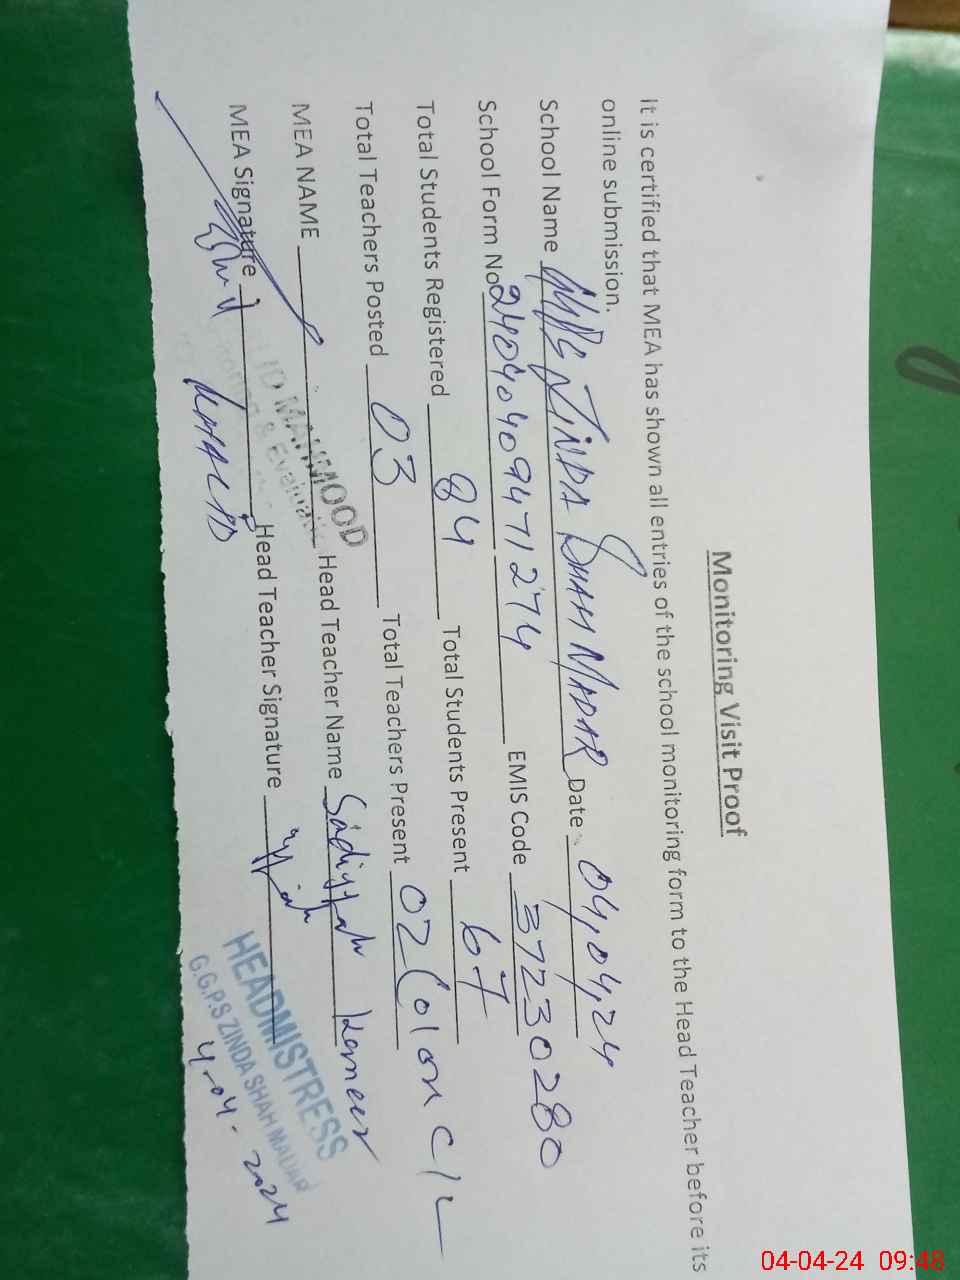 Monitoring Visit Proof
It is certified that MEA has shown all entries of the school monitoring form to the Head Teacher before its
online submission.
School Name MPS ZINDA SHAH MADAR Date 04,04,24
School Form No 24040409471274 EMIS Code 37230280
Total Students Registered 84 Total Students Present 67
Total Teachers Posted 03 Total Teachers Present 02 (01 on c/L
MEA NAME MAHMOOD Head Teacher Name Sadiyyah Kanwer
MEA Signature KHALID Head Teacher Signature
HEADMISTRESS
G.G.P.S ZINDA SHAH MADAR
4-04-2024
04-04-24 09:48